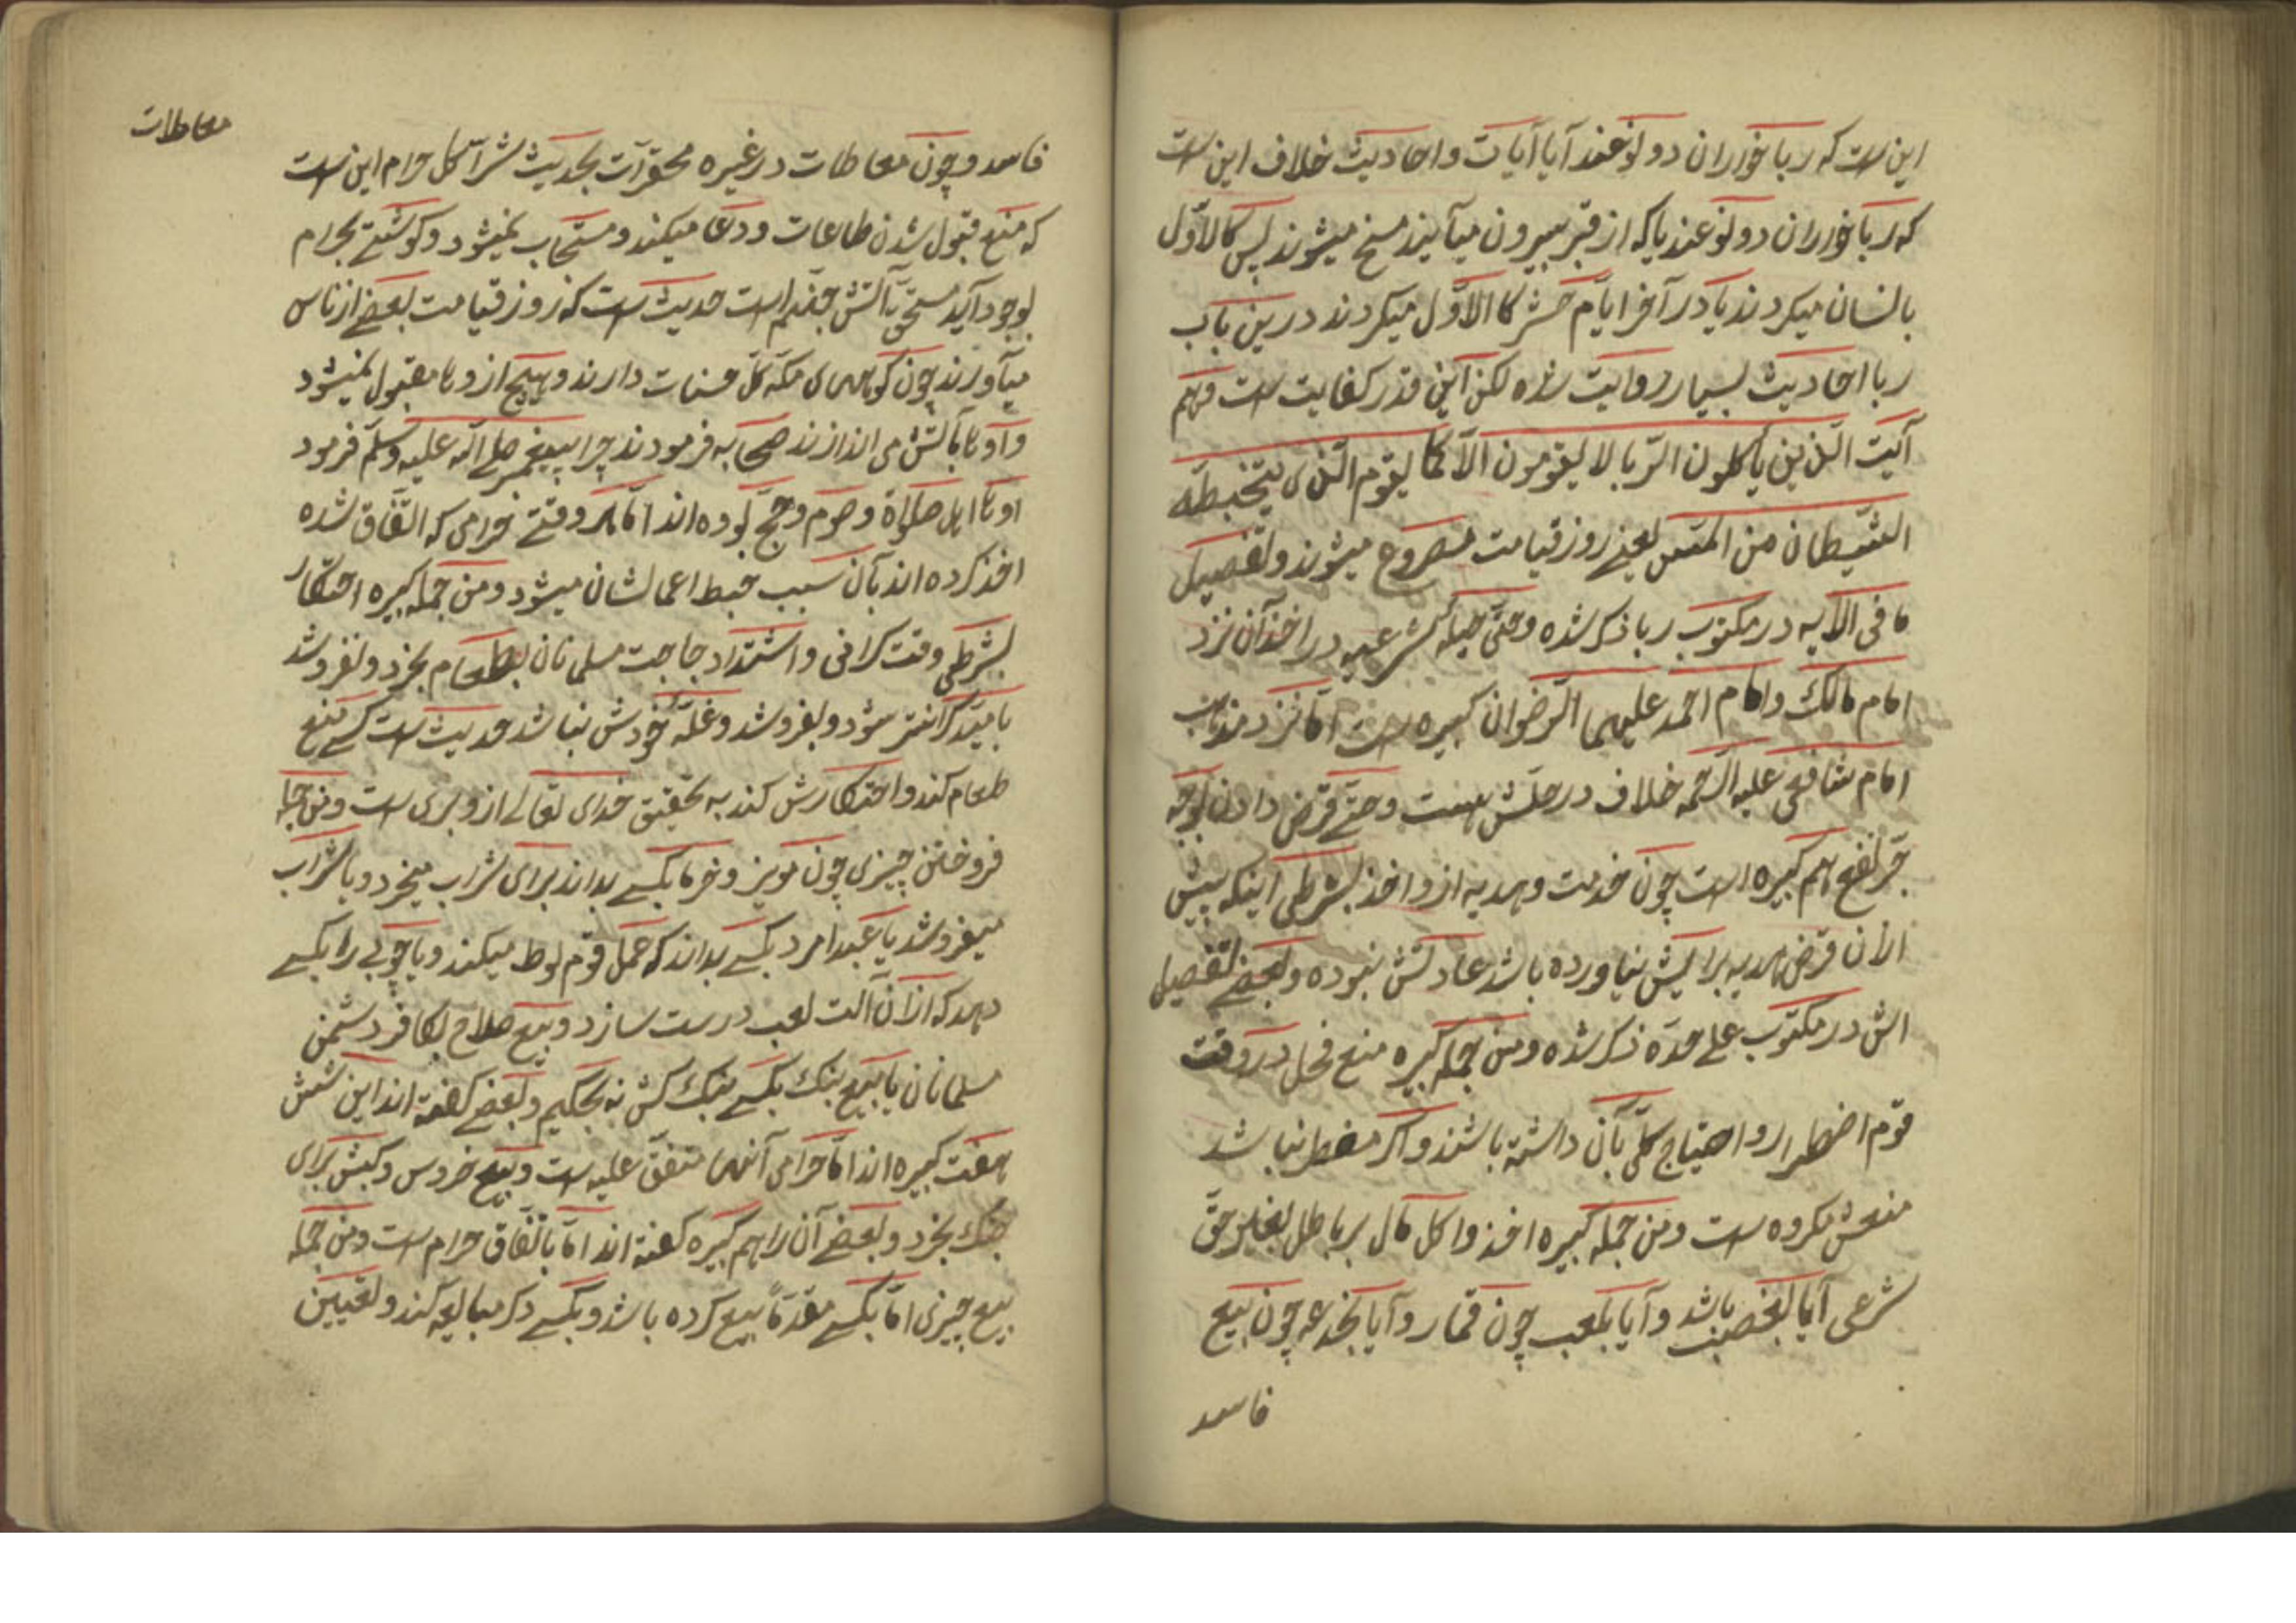 این ست که ربا خوران دو نوعند آیا آیات و احادیث خلاف این ست
که ربا خوران دو نوعند یا که از قبر بیرون میآیند مسخ میشوند پس کالاوّل
بانسان میکردند یا در آخر ایام حشر کالاوّل میکردند درین باب
ربا احادیث بسیار روایت شده لکن این قدر کفایت ست فهم
آیت الّذین یأکلون الرّبا لا یقومون الّا کما یقوم الّذی یتخبطه
الشّیطان من المسّ یعنے روز قیامت مصروع میشوند و تفصیل
ما فی الآیه در مکتوب ربا ذکر شده و حتّی حیلهٔ شرعیه در اخذ آن نزد
امام مالک و امام احمد علیهما الرّضوان کبیره ست امّا نزد مذهب
امام شافعی علیه الرّحمه خلاف در حلّش هست و حتّے قرض دادن بوجه
جرّ نفع هم کبیره است چون خدمت و هدیه ازو اخذ بشرطی اینکه پیش
ازان قرض هدیه برایش نیاورده باشد عادتش نبوده و بعضے تفصیل
اش در مکتوب علے حدّه ذکر شده و من جمله کبیره منع فحل در وقت
قوم اضطرار و احتیاج کلّی بآن داشته باشند و اکر مضطر نباشد
منعش مکروه ست و من جمله کبیره اخذ و اکل مال بر باطل بغیر حقّ
شرعی آیا بغصب باشد و آیا بلعب چون قمار و آیا بخدعه چون بیع
فاسد
معاطات
فاسد و چون معاطات در غیره محقرات بحدیث شرآ کل حرام این ست
که منع قبول شدن طاعات و دعا میکند و مستجاب نمیشود و کوشتے بحرام
بوجود آید مستحقّ آتش جهنّم است حدیث ست که روز قیامت بعضے از ناس
میآورند چون کوههای مکه کلّ حسنات دارند و هیچ ازوها مقبول نمیشود
و آوها بآتش می اندازند صحابه فرمودند چرا پیغمبر صلے اللّه علیه و سلّم فرمود
اوها اهل صلوٰة و صوم و حجّ بوده اند امّا هر وقتے حرامی که اتّفاق شده
اخذ کرده اند بآن سبب حبط اعمالشان میشود و من جمله کبیره احتکار
بشرطی وقت کرانی و اشتداد حاجت مسلمانان بطعام بخرد و نفروشد
بامید کرانتر شود و بفروشد و غلّهٔ خودش نباشد حدیث ست کسے منع
طعام کند و احتکارش کند به تحقیق خدای تعالے ازو بری ست و من جمله
فروختن چیزی چون مویز و خرما بکسے بداند برای شراب میخرد و یا شراب
میفروشد یا عبد امرد بکسے بداند که عمل قوم لوط میکند و یا چوبے را بکسے
دهد که ازان آلت لعب درست سازد و بیع صلاح بکافر دشمن
مسلمانان یا بیع بنک بکسے بنک کش نه بحکیم و بعضے کفته اند این شش
هفت کبیره اند امّا حرامی آنها متفق علیه ست و بیع خروس و کبش برای
جنک بخرد و بعضے آن را هم کبیره کفته اند امّا باتّفاق حرام ست و من جمله
بیع چیزی امّا بکسے مقدماً بیع کرده باشد و بکسے دکر مبایعه کند و لتعیین